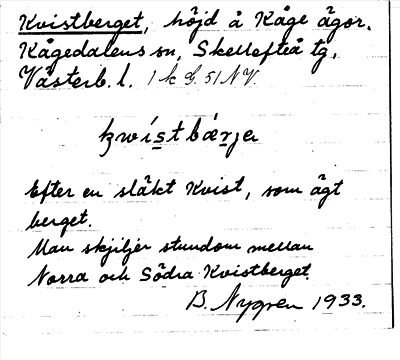 Kvistberget, höjd å Kåge ägor.
Kågedalens sn, Skellefteå tg,
Västerb. l. 1 k S. 51 NV.
kwístbǽrjɐ
Efter en släkt Kvist, som ägt
berget.
Man skjiljer stundom mellan
Norra och Södra Kvistberget.
B. Nygren 1933.